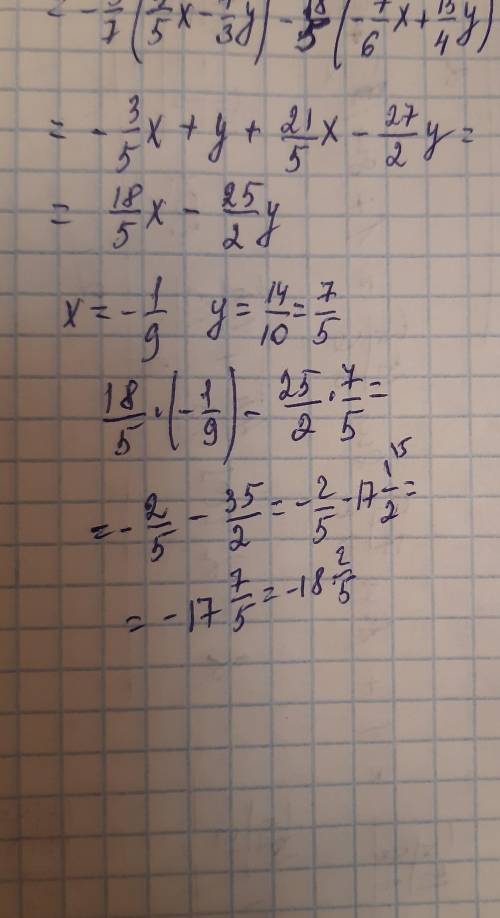 = - 3/7 (7/5 x - 7/3 y) - 18/5 (-7/6 x + 15/4 y)
= - 3/5 x + y + 21/5 x - 27/2 y =
= 18/5 x - 25/2 y
x = - 1/9 y = 14/10 = 7/5
18/5 · (- 1/9) - 25/2 · 7/5 =
= - 2/5 - 35/2 = - 2/5 - 17 1/2 =
= - 17 7/5 = -18 2/5